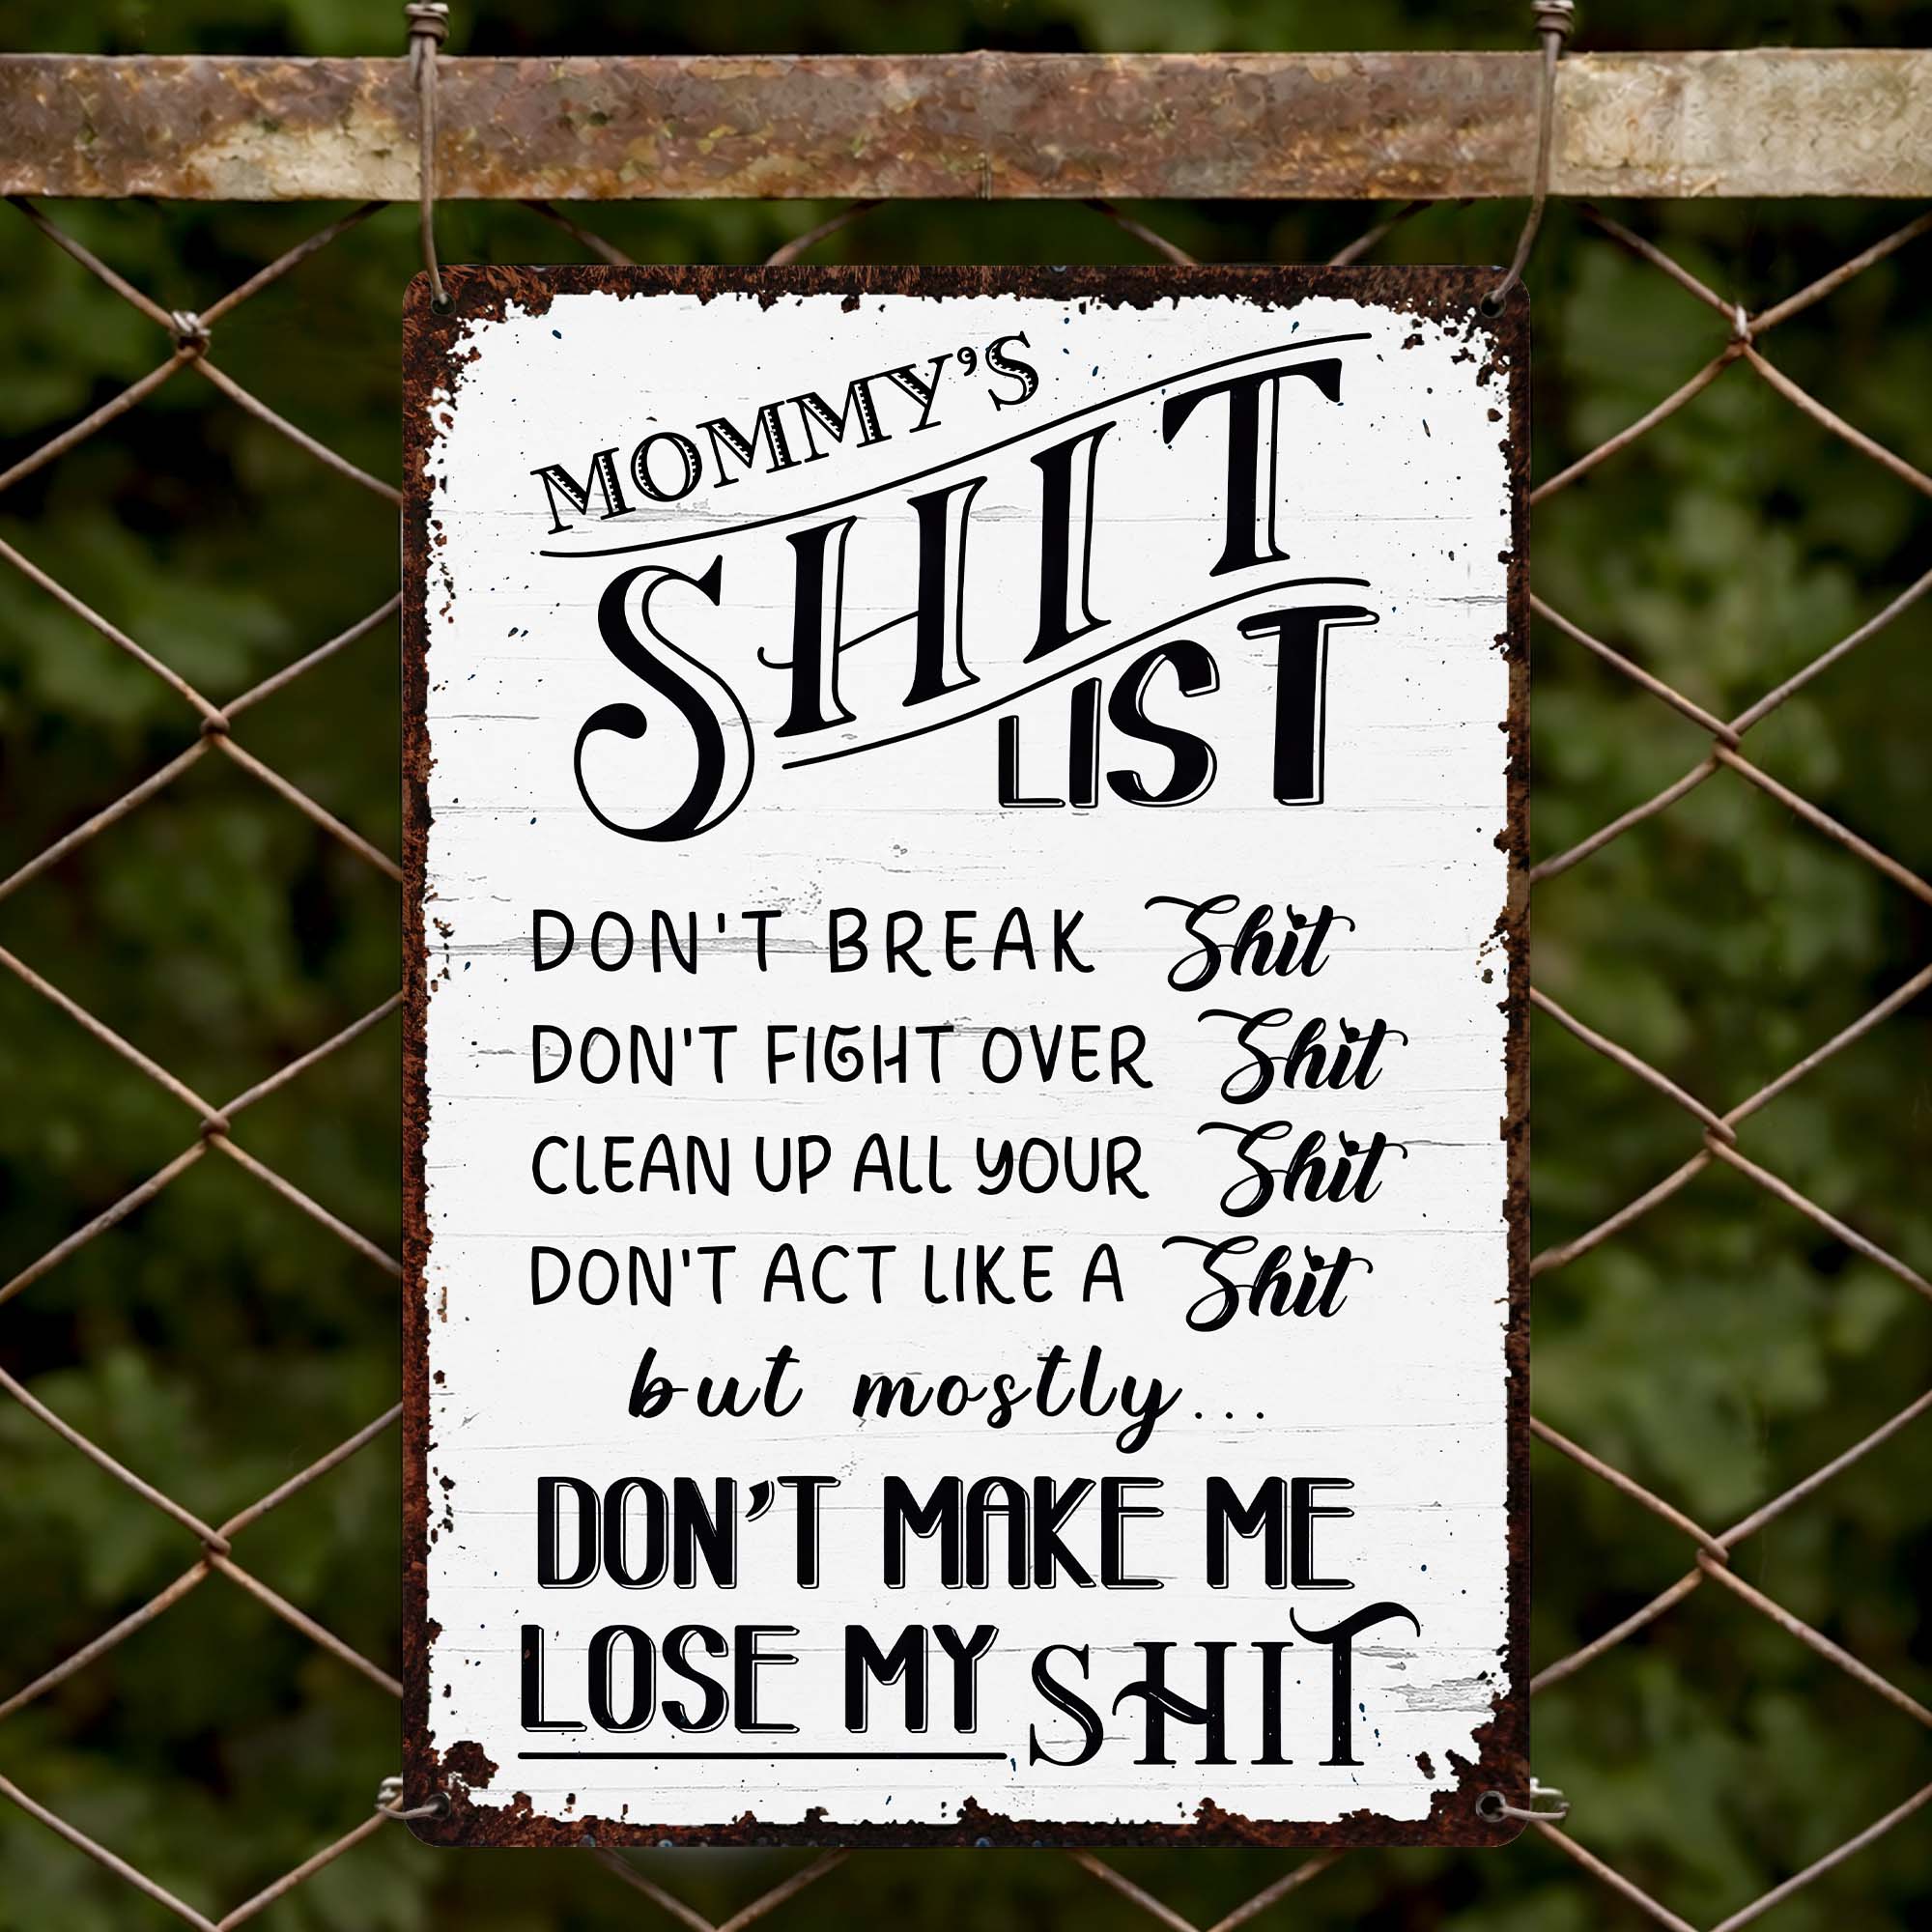 MOMMY'S
SHIT
LIST
DON'T BREAK Shit
DON'T FIGHT OVER Shit
CLEAN UP ALL YOUR Shit
DON'T ACT LIKE A Shit
but mostly...
DON'T MAKE ME
LOSE MY SHIT